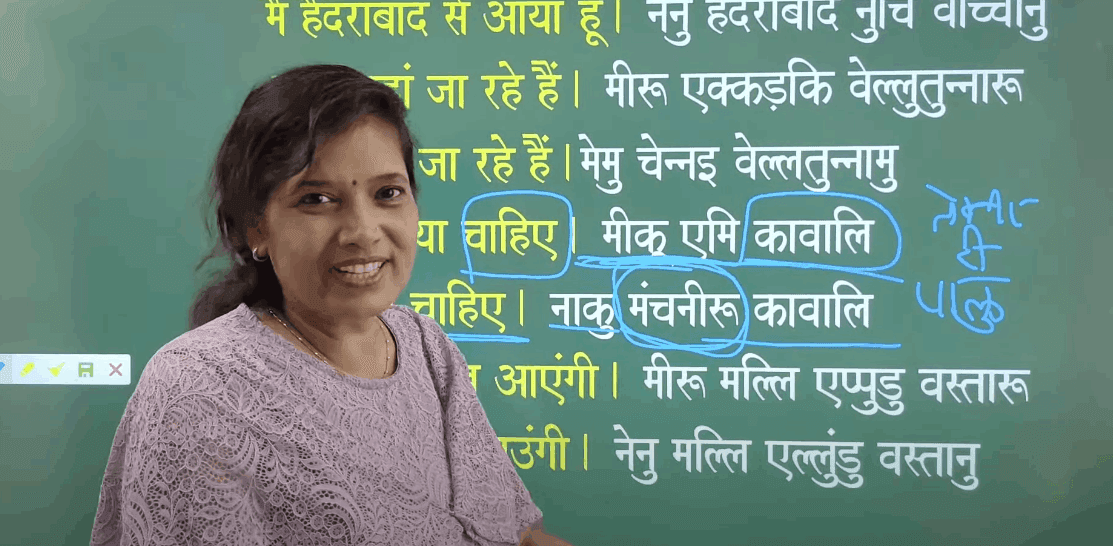 मैं हैदराबाद से आया हूं। नेनु हैदराबाद नुंचि वाच्चानु
जा रहे हैं। मीरू एक्कड़कि वेल्लुतुन्नारू
जा रहे हैं। मेमु चेन्नइ वेल्लतुन्नामु
चाहिए। मीकू एमि कावालि
चाहिए। नाकु मंचनीरू कावालि
आएंगी। मीरू मल्लि एप्पुडु वस्तारू
नेनु मल्लि एल्लुंडु वस्तानु